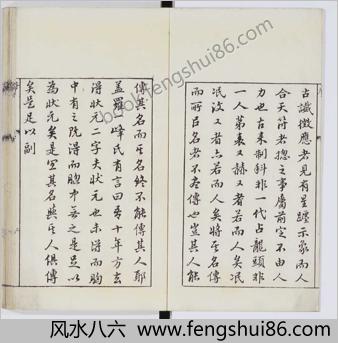 bs.fengshui86.com
古讖徵應者見有星躔示象而人
合天符者摠之事屬前定不由人
力也古來制科非一代占龍頭非
一人第表又赫又者若而人矣泯
泯汶又者亦若而人矣將星名傳
而所以名者不盡傳也豈其人能
傳其名而星名終不能傳其人耶
盖羅峰氏有言曰吾十年方去
得狀元二字夫狀元也未得而胸
中有之既得而胸中無之是足以
為狀元矣是冥其名與星人俱傳
矣是足以副
风水八六 www.fengshui86.com